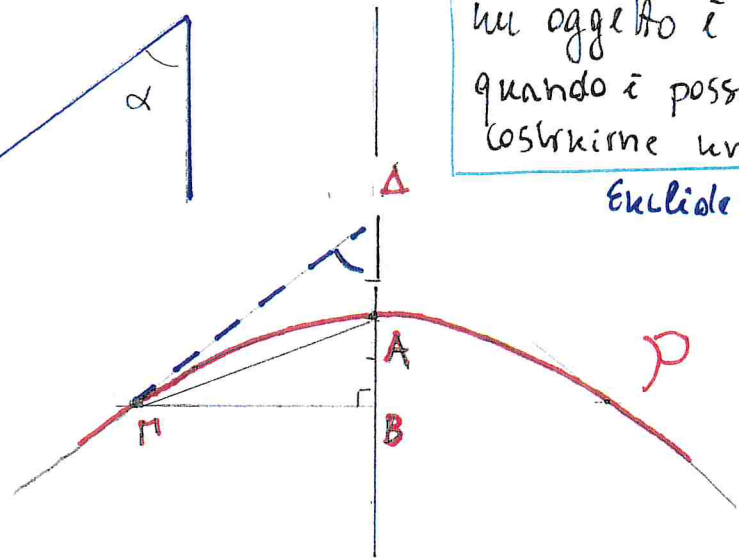 un oggetto è
quando è poss
costruirne un
Euclide
α
Δ
A
P
M
B